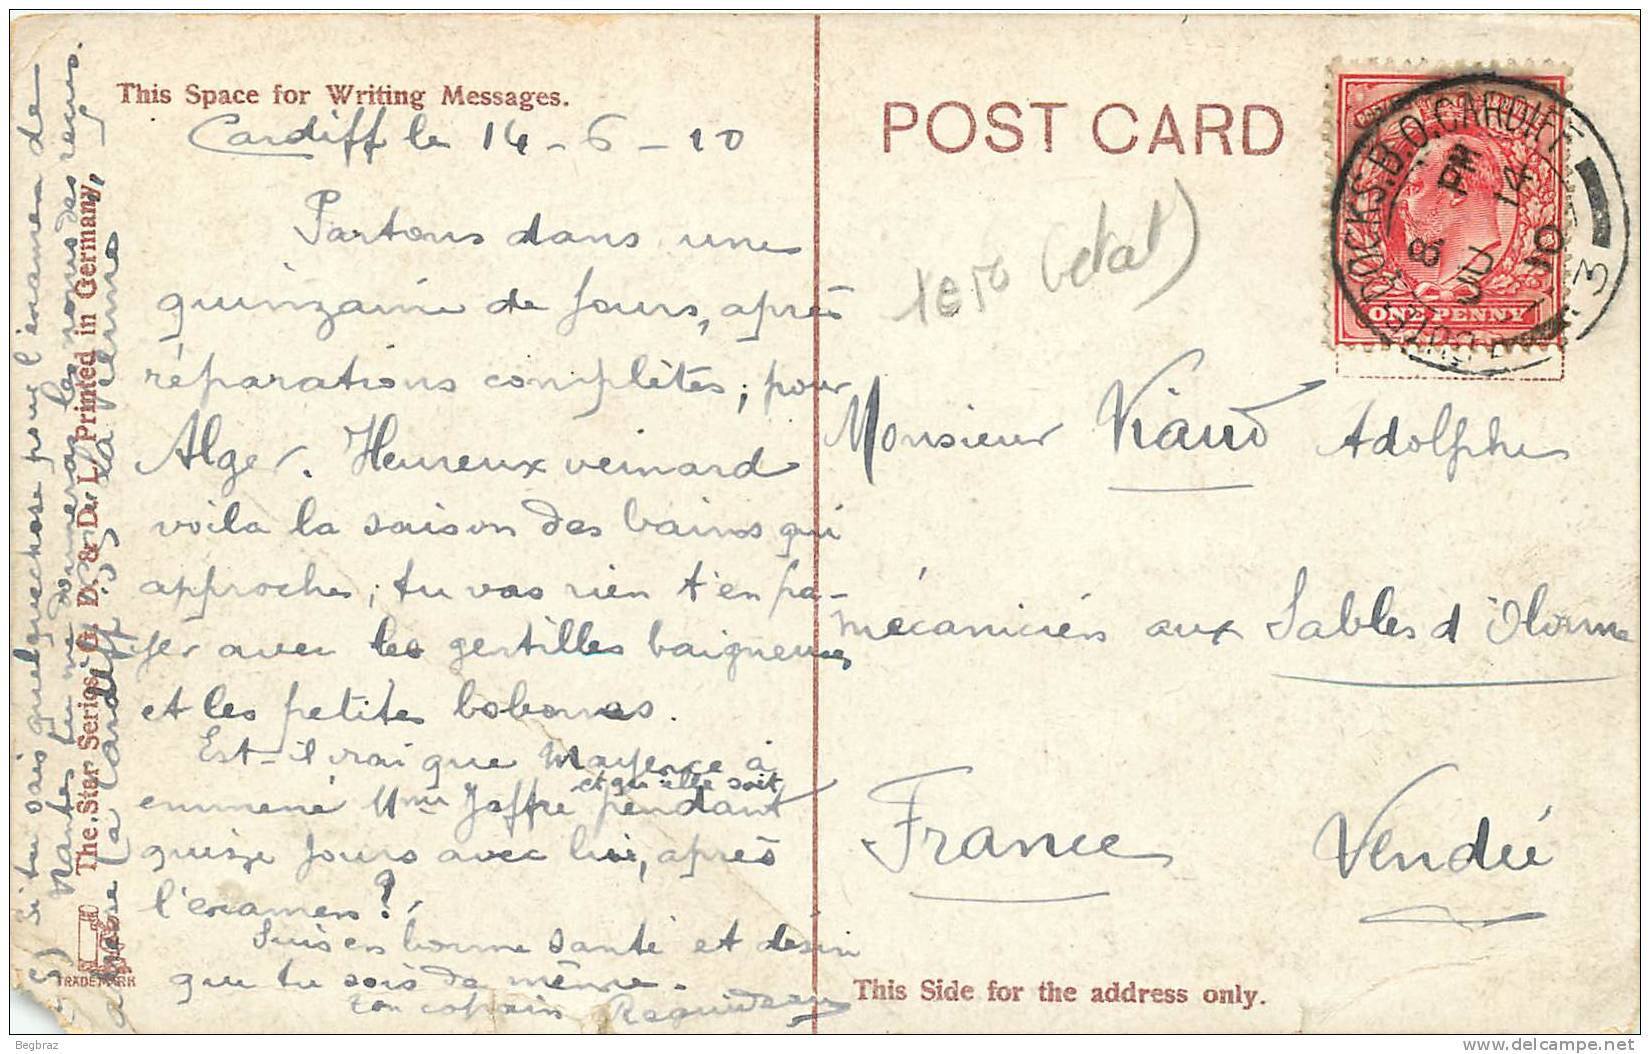 This Space for Writing Messages.
Cardiff le 14 - 6 - 10
Partons dans une
quinzaine de jours, après
réparations complètes, pour
Alger. Heureux veinard
voila la saison des bains qui
approche, tu vas rien t'en pa-
yer avec les gentilles baigneuses
et les petites bobonnes.
Est-il vrai que Mayence a
et qu'elle soit
emmené Mme Joffre pendant
quize jours avec lui, après
l'examen?
Suis en bonne santé et désire
que tu sois de même.
ton copain
si tu sais quelquechose pour l'examen de
Nantes tu me donneras les noms des reçus.
adresse à Cardiff
The Star Series. G. D. & D. L. Printed in Germany.
TRADE MARK
POST CARD
1e50 (etat)
DOCKS.B.O.CARDIFF
8 PM
14 JU
10
3
ONE PENNY
Monsieur Viaud Adolphe
mécanicien aux Sables d'Olonne
France Vendée
This Side for the address only.
Begbraz
www.delcampe.net